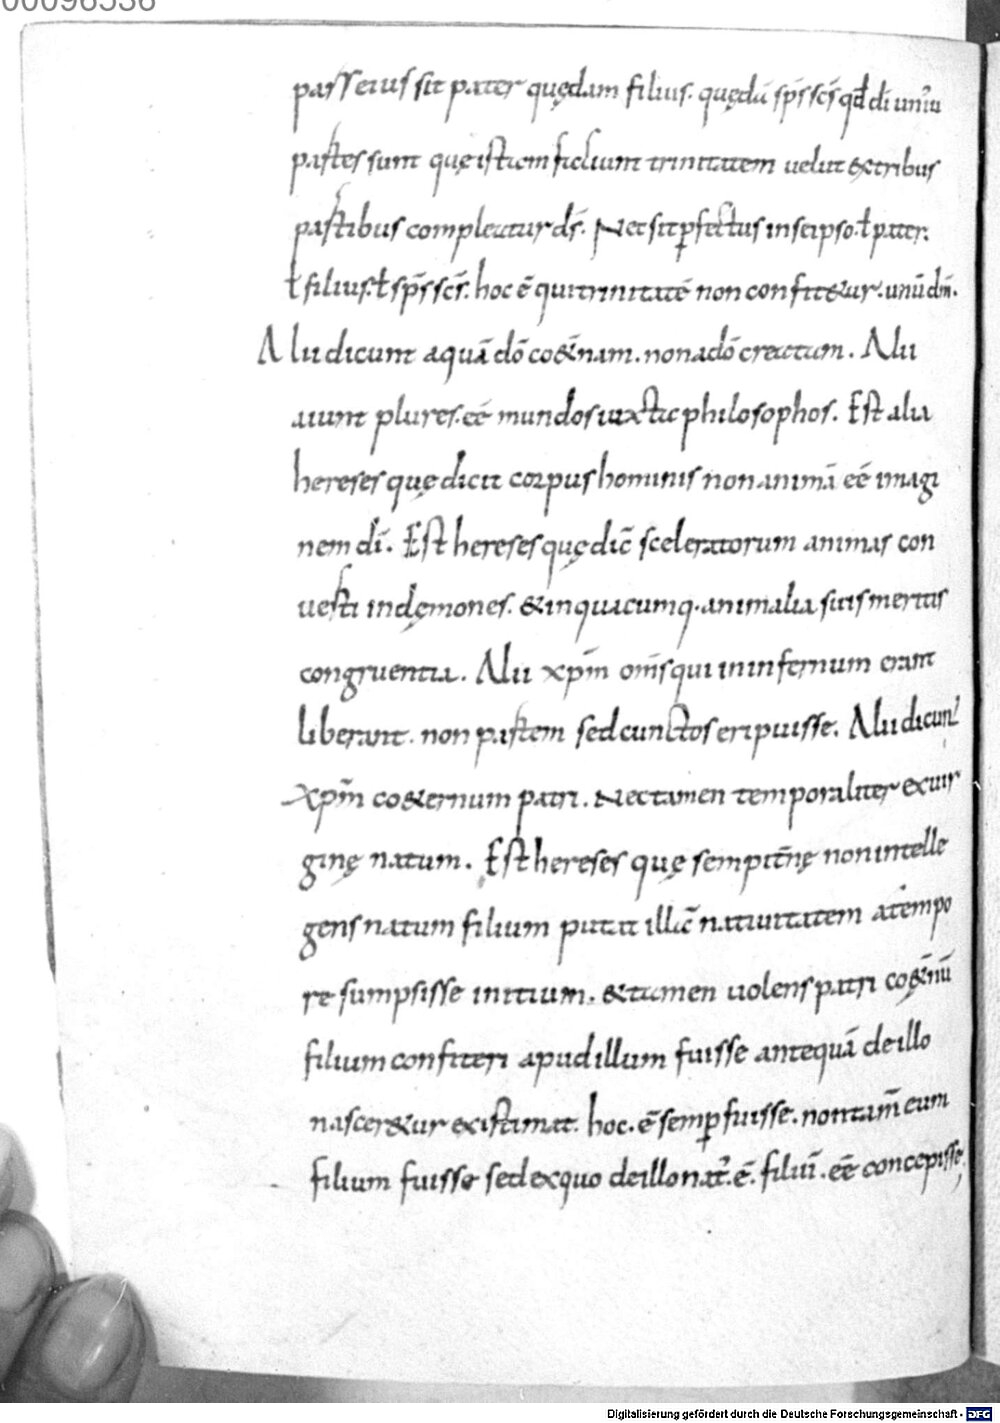 00096536
pars Ʒeius sit pater quędam filius. quędā sp̄s sc̄s qđ dī uniu
partes sunt quę istam faciunt trinitatem uelut ex tribus
partibus compleatur ds̄. Nec sit p̱fectus in se ipso. ł pater.
ł filius. ł sp̄s sc̄s. hoc ē qui trinitatē non confit&ur. unū dm̄.
Alii dicunt aquā dō co&̄nam. non a dō creatam. Alii
aiunt plures. eē mundos iuxta philosophos. Est alia
hereses quę dicit corpus hominis non animā eē imagi
nem dī. Est hereses quę dic̄ sceleratorum animas con
uerti in dęmones. & in quacumq. animalia suis meritis
congruentia. Alii xp̄m om̄s qui in infernum erant
liberant. non partem sed cunctos eripuisse. Alii dicunt
Xp̄m co&ernum patri. Nec tamen temporaliter ex uir
ginę natum. Est hereses quę sempit̄nę non intelle
gens natum filium putat illac̄ natiuitatem a tempo
re sumpsisse initium. & tamen uolens patri co&̄nū
filium confiteri apud illum fuisse antequā de illo
nascer&ur existimat. hoc. ē semp̱ fuisse. non tam̄ eum
filium fuisse sed ex quo de illo nat᷒. ē. filiū. eē concepisse,
Digitalisierung gefördert durch die Deutsche Forschungsgemeinschaft - DFG